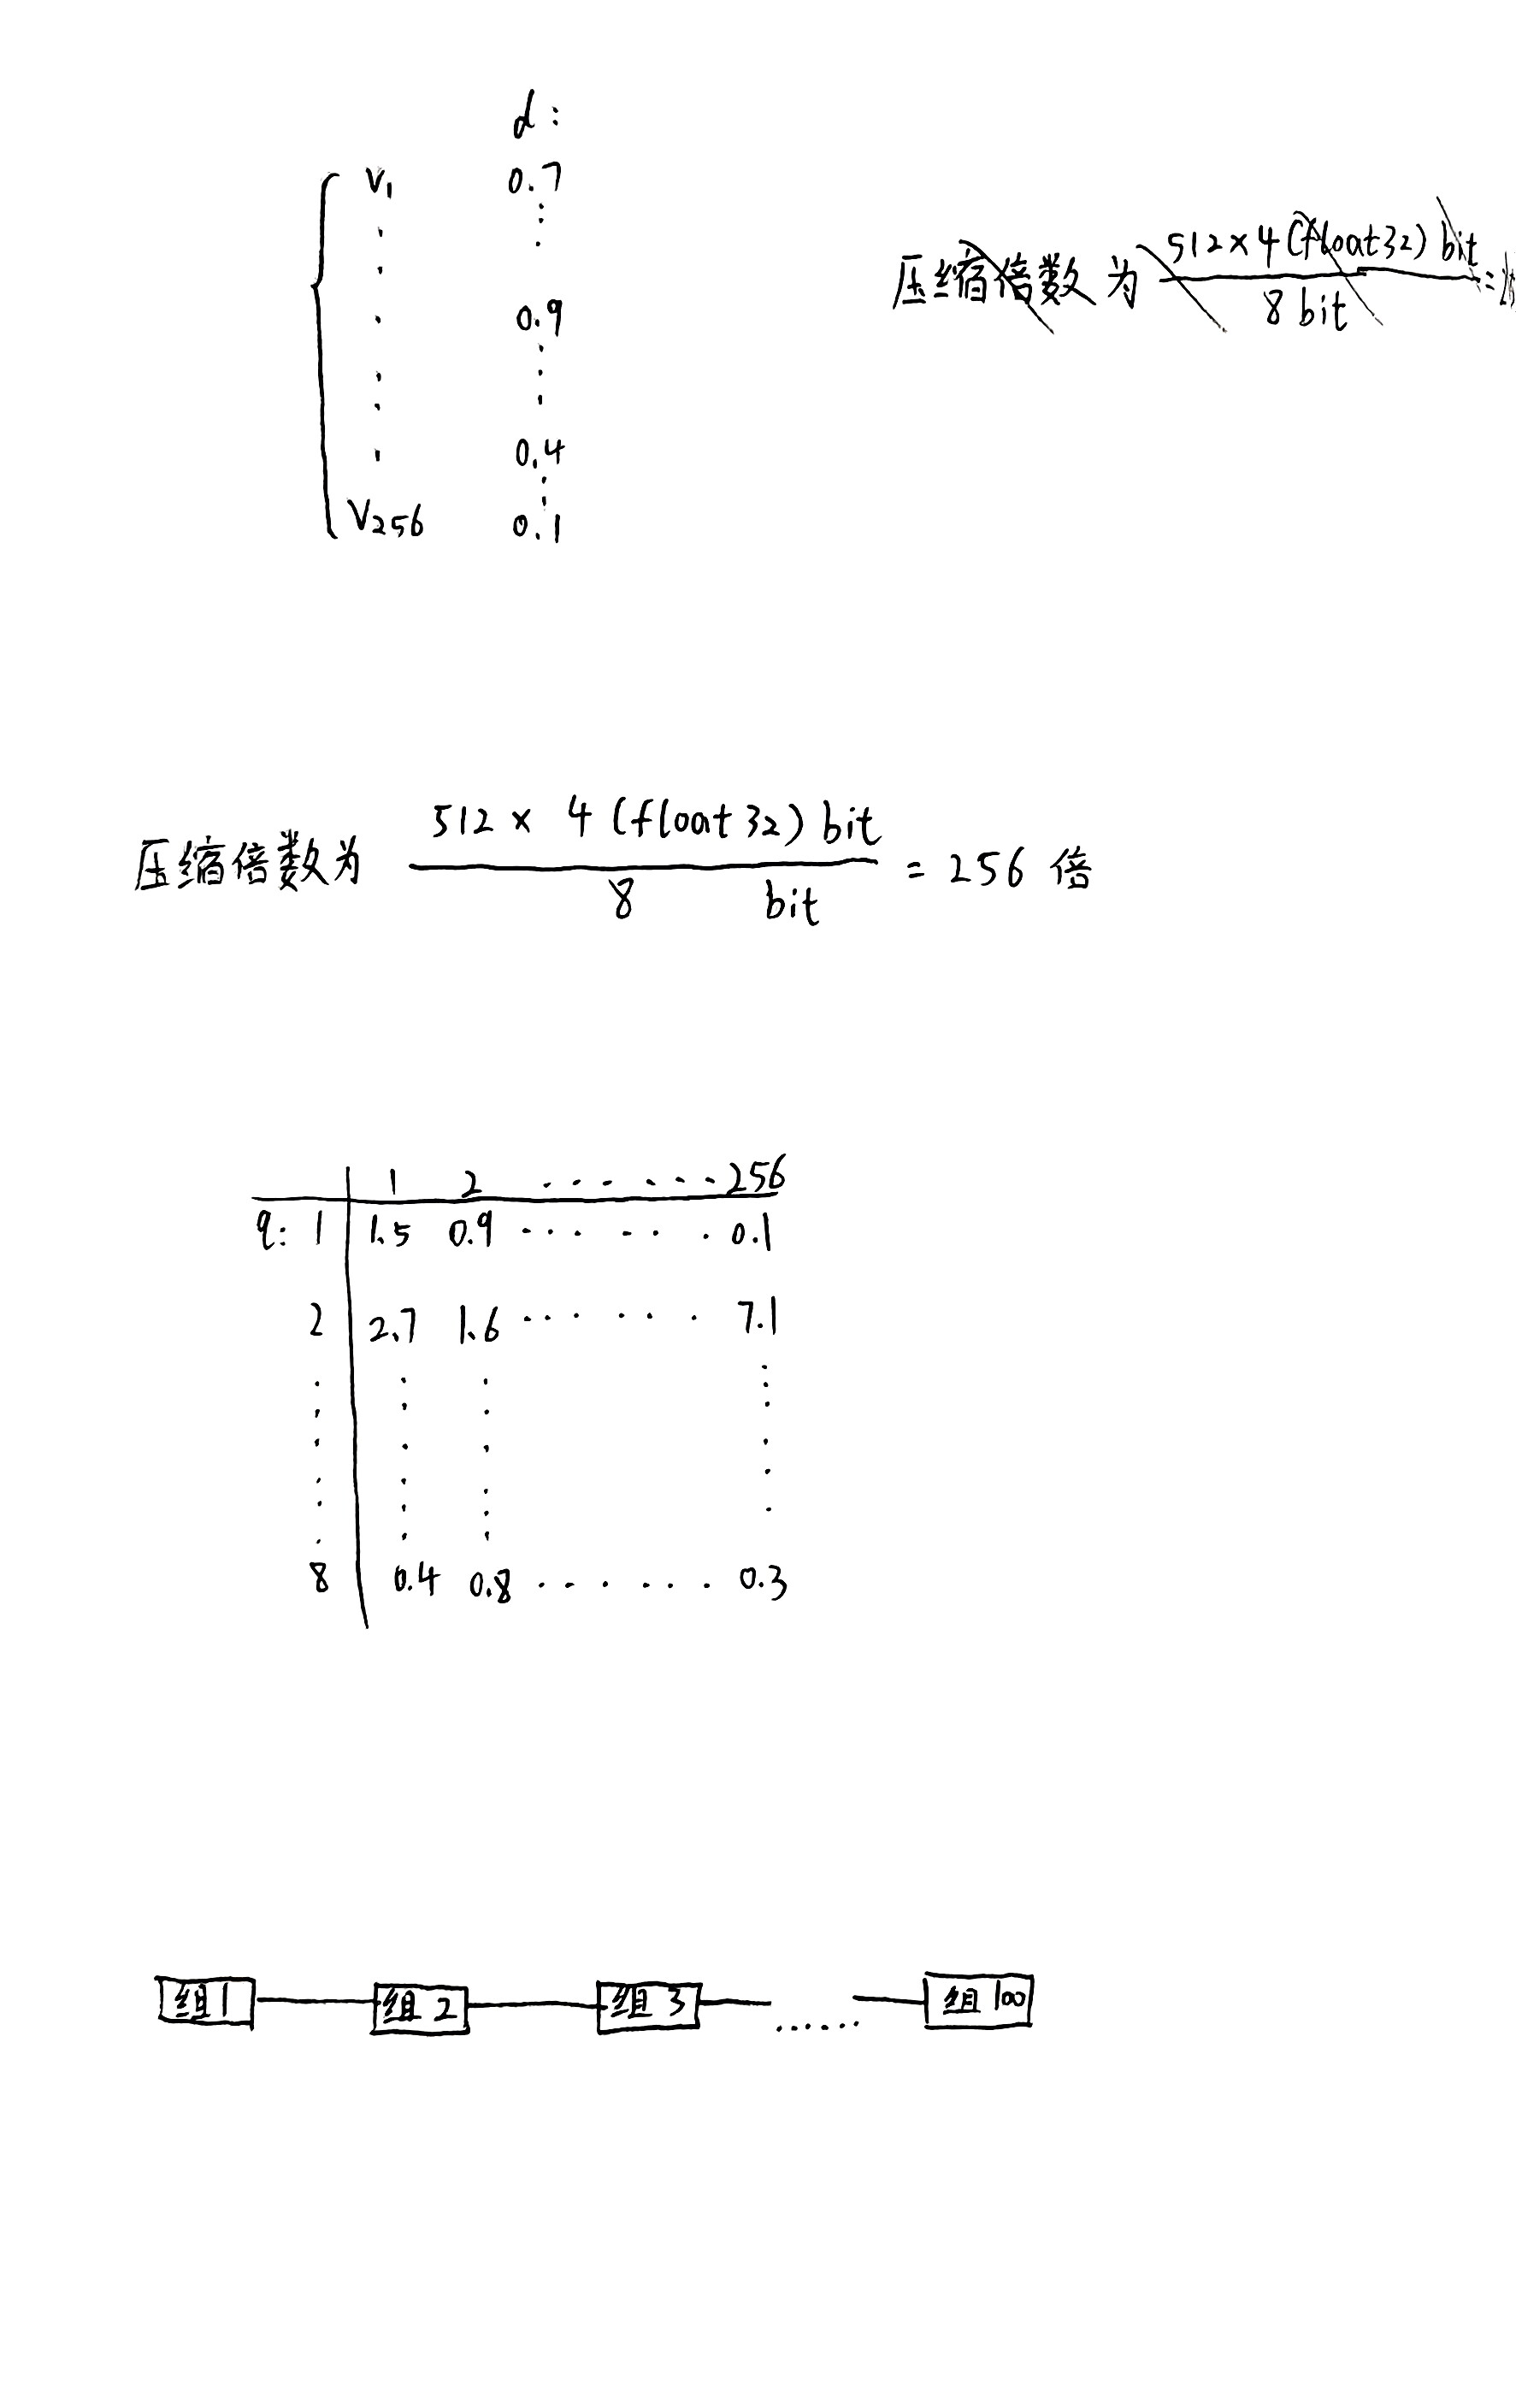 d :
V1 0.7
0.9
0.4
V256 0.1
压缩倍数为 512 × 4 (float32) bit
8 bit =
压缩倍数为 512 × 4 (float 32) bit
8 bit = 256 倍
1 2 ...... 256
q: 1 1.5 0.9 ...... 0.1
2 2.7 1.6 ...... 7.1
8 0.4 0.8 ...... 0.3
组1 组2 组3 ...... 组100